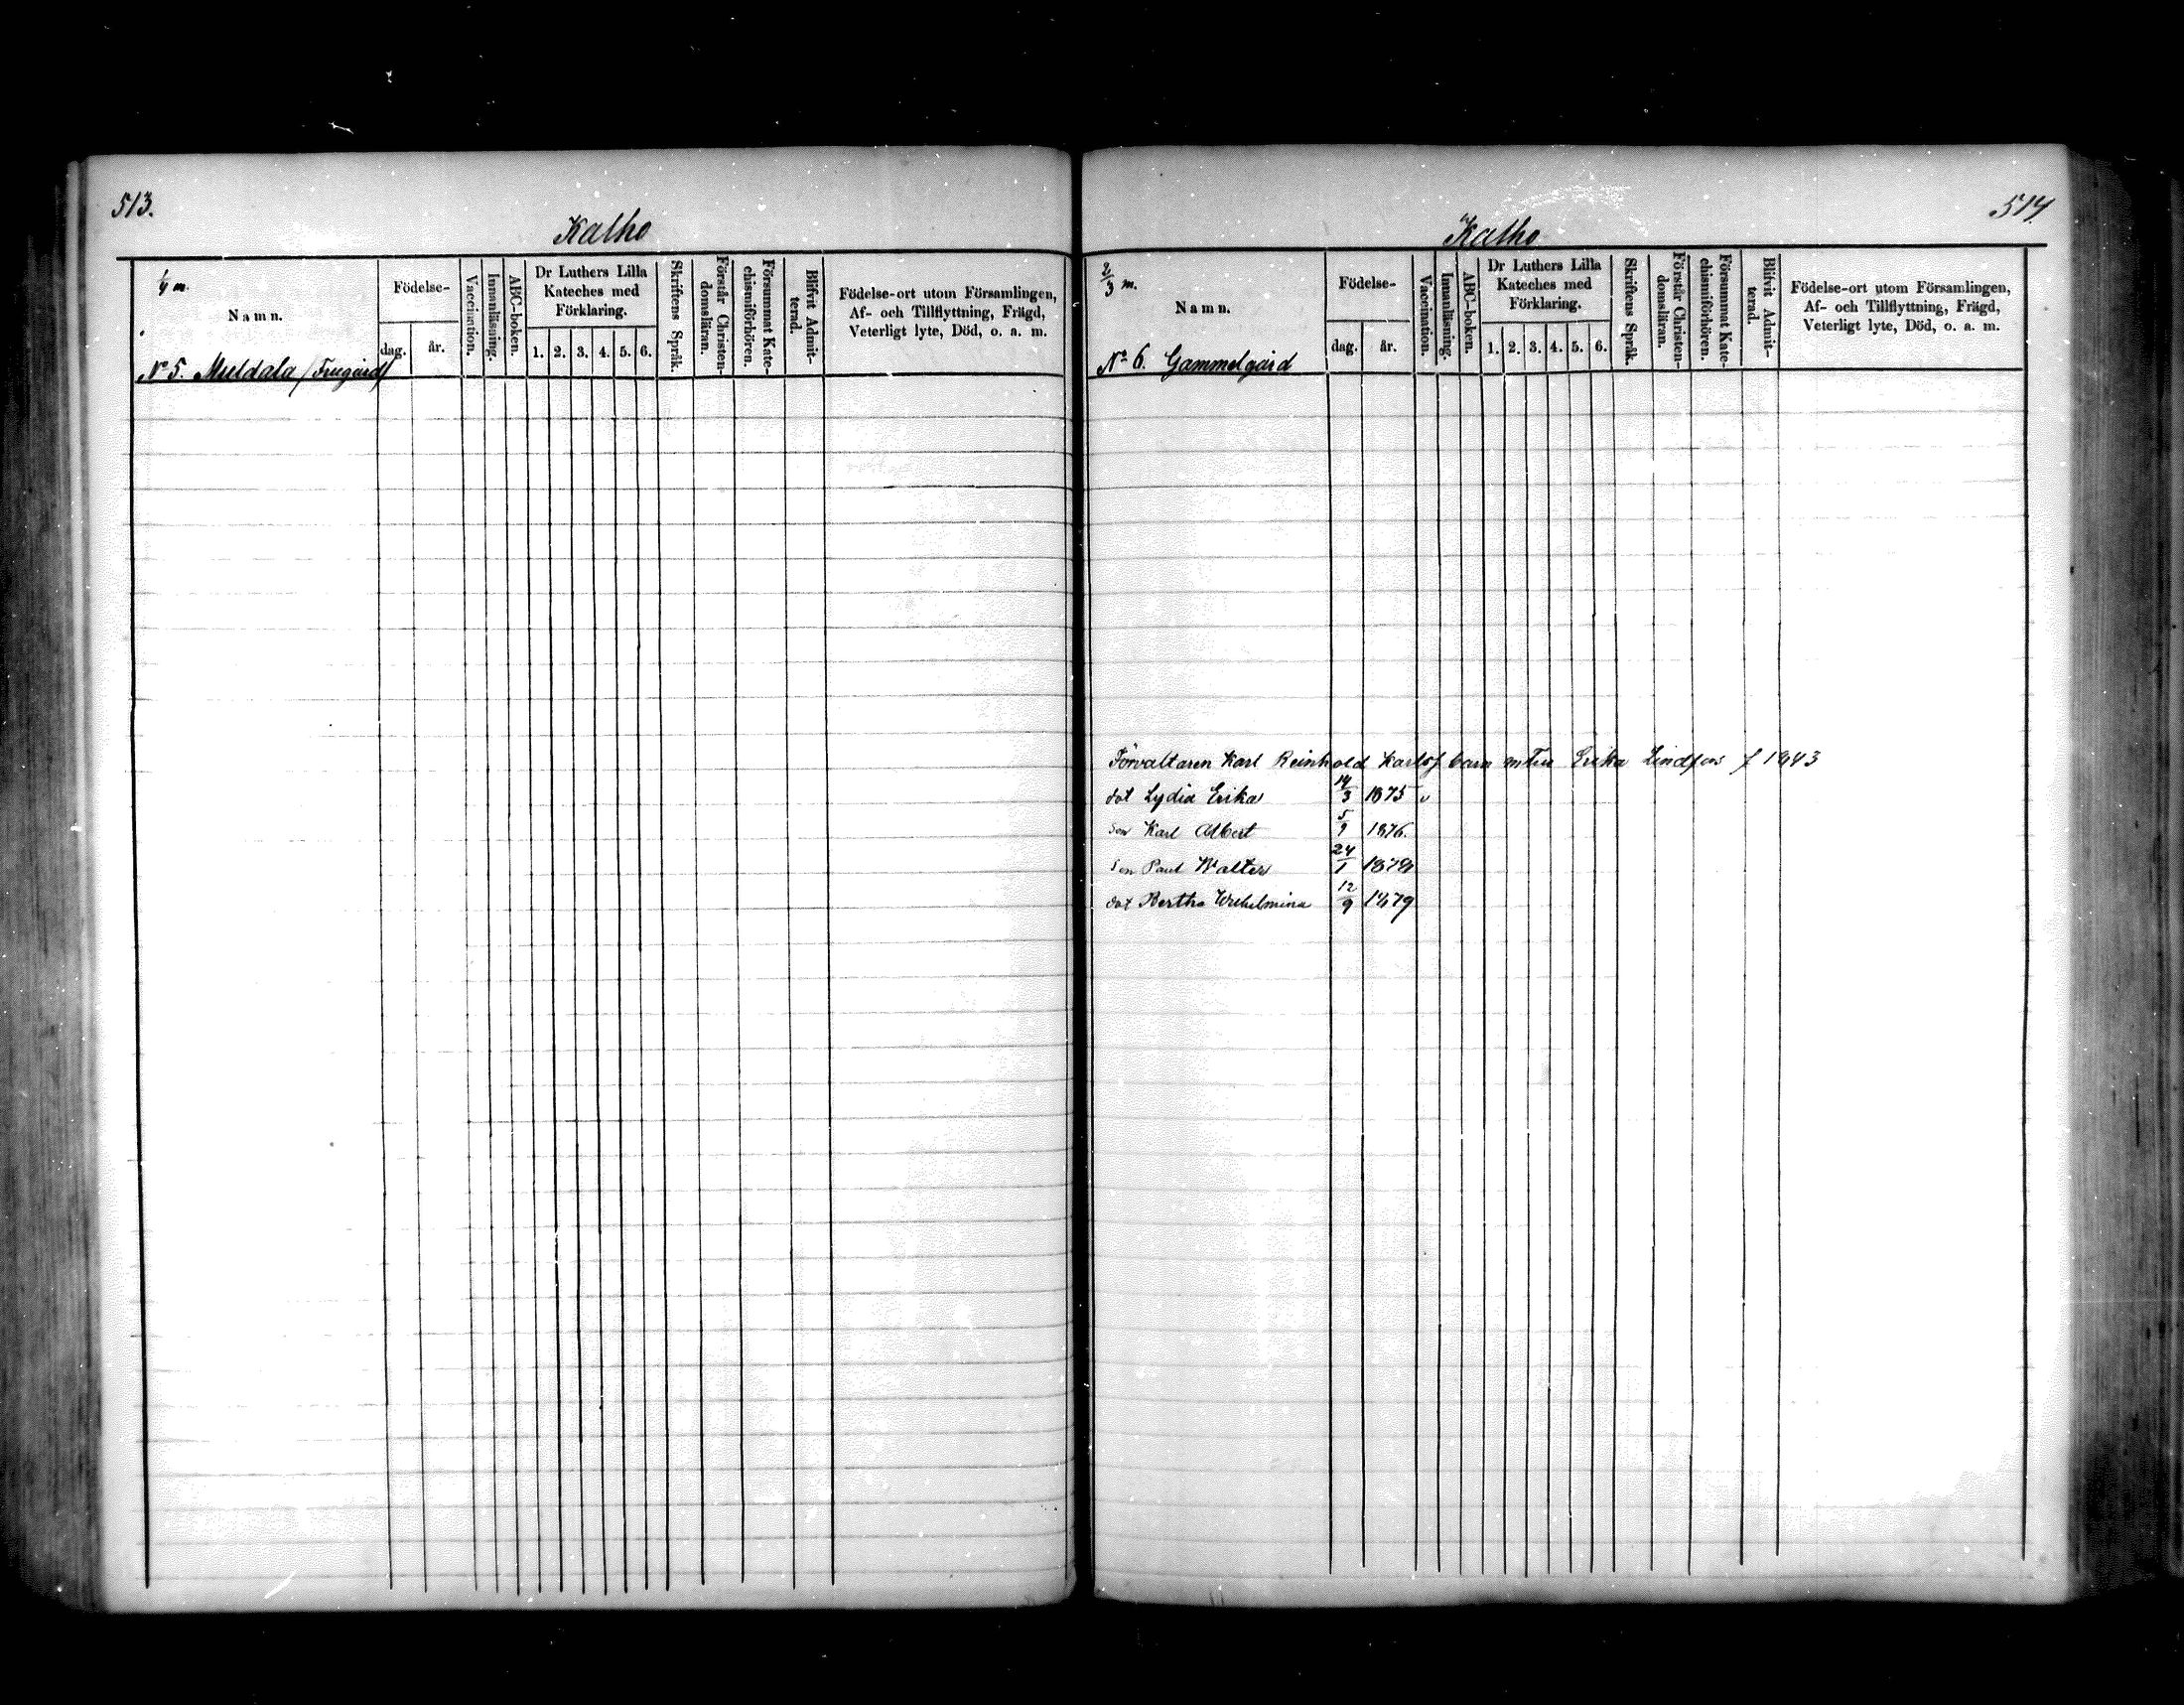 513.
Kalho
1/4 m.
Namn.
Födelse-
dag.
år.
Vaccination.
Innanläsning.
ABC-boken.
Dr Luthers Lilla
Kateches med
Förklaring.
1. 2. 3. 4. 5. 6.
Skriftens Språk.
Förstår Christen-
domsläran.
Försummat Kate-
chismiförhören.
Blifvit Admit-
terad.
Födelse-ort utom Församlingen,
Af- och Tillflyttning, Frägd,
Veterligt lyte, Död, o. a. m.
No 5. Muldala /Frugård/
514.
Kalho
2/3 m.
Namn.
Födelse-
dag.
år.
Vaccination.
Innanläsning.
ABC-boken.
Dr Luthers Lilla
Kateches med
Förklaring.
1. 2. 3. 4. 5. 6.
Skriftens Språk.
Förstår Christen-
domsläran.
Försummat Kate-
chismiförhören.
Blifvit Admit-
terad.
Födelse-ort utom Församlingen,
Af- och Tillflyttning, Frägd,
Veterligt lyte, Död, o. a. m.
No 6. Gammelgård
Förvaltaren Karl Reinhold barn Erika Lindfors f 1843
dot Lydia Erika 14/3 1875 v
son Karl Albert 5/9 1876.
son Paul Walter 24/1 1878
dot Bertha Wilhelmina 12/9 1879